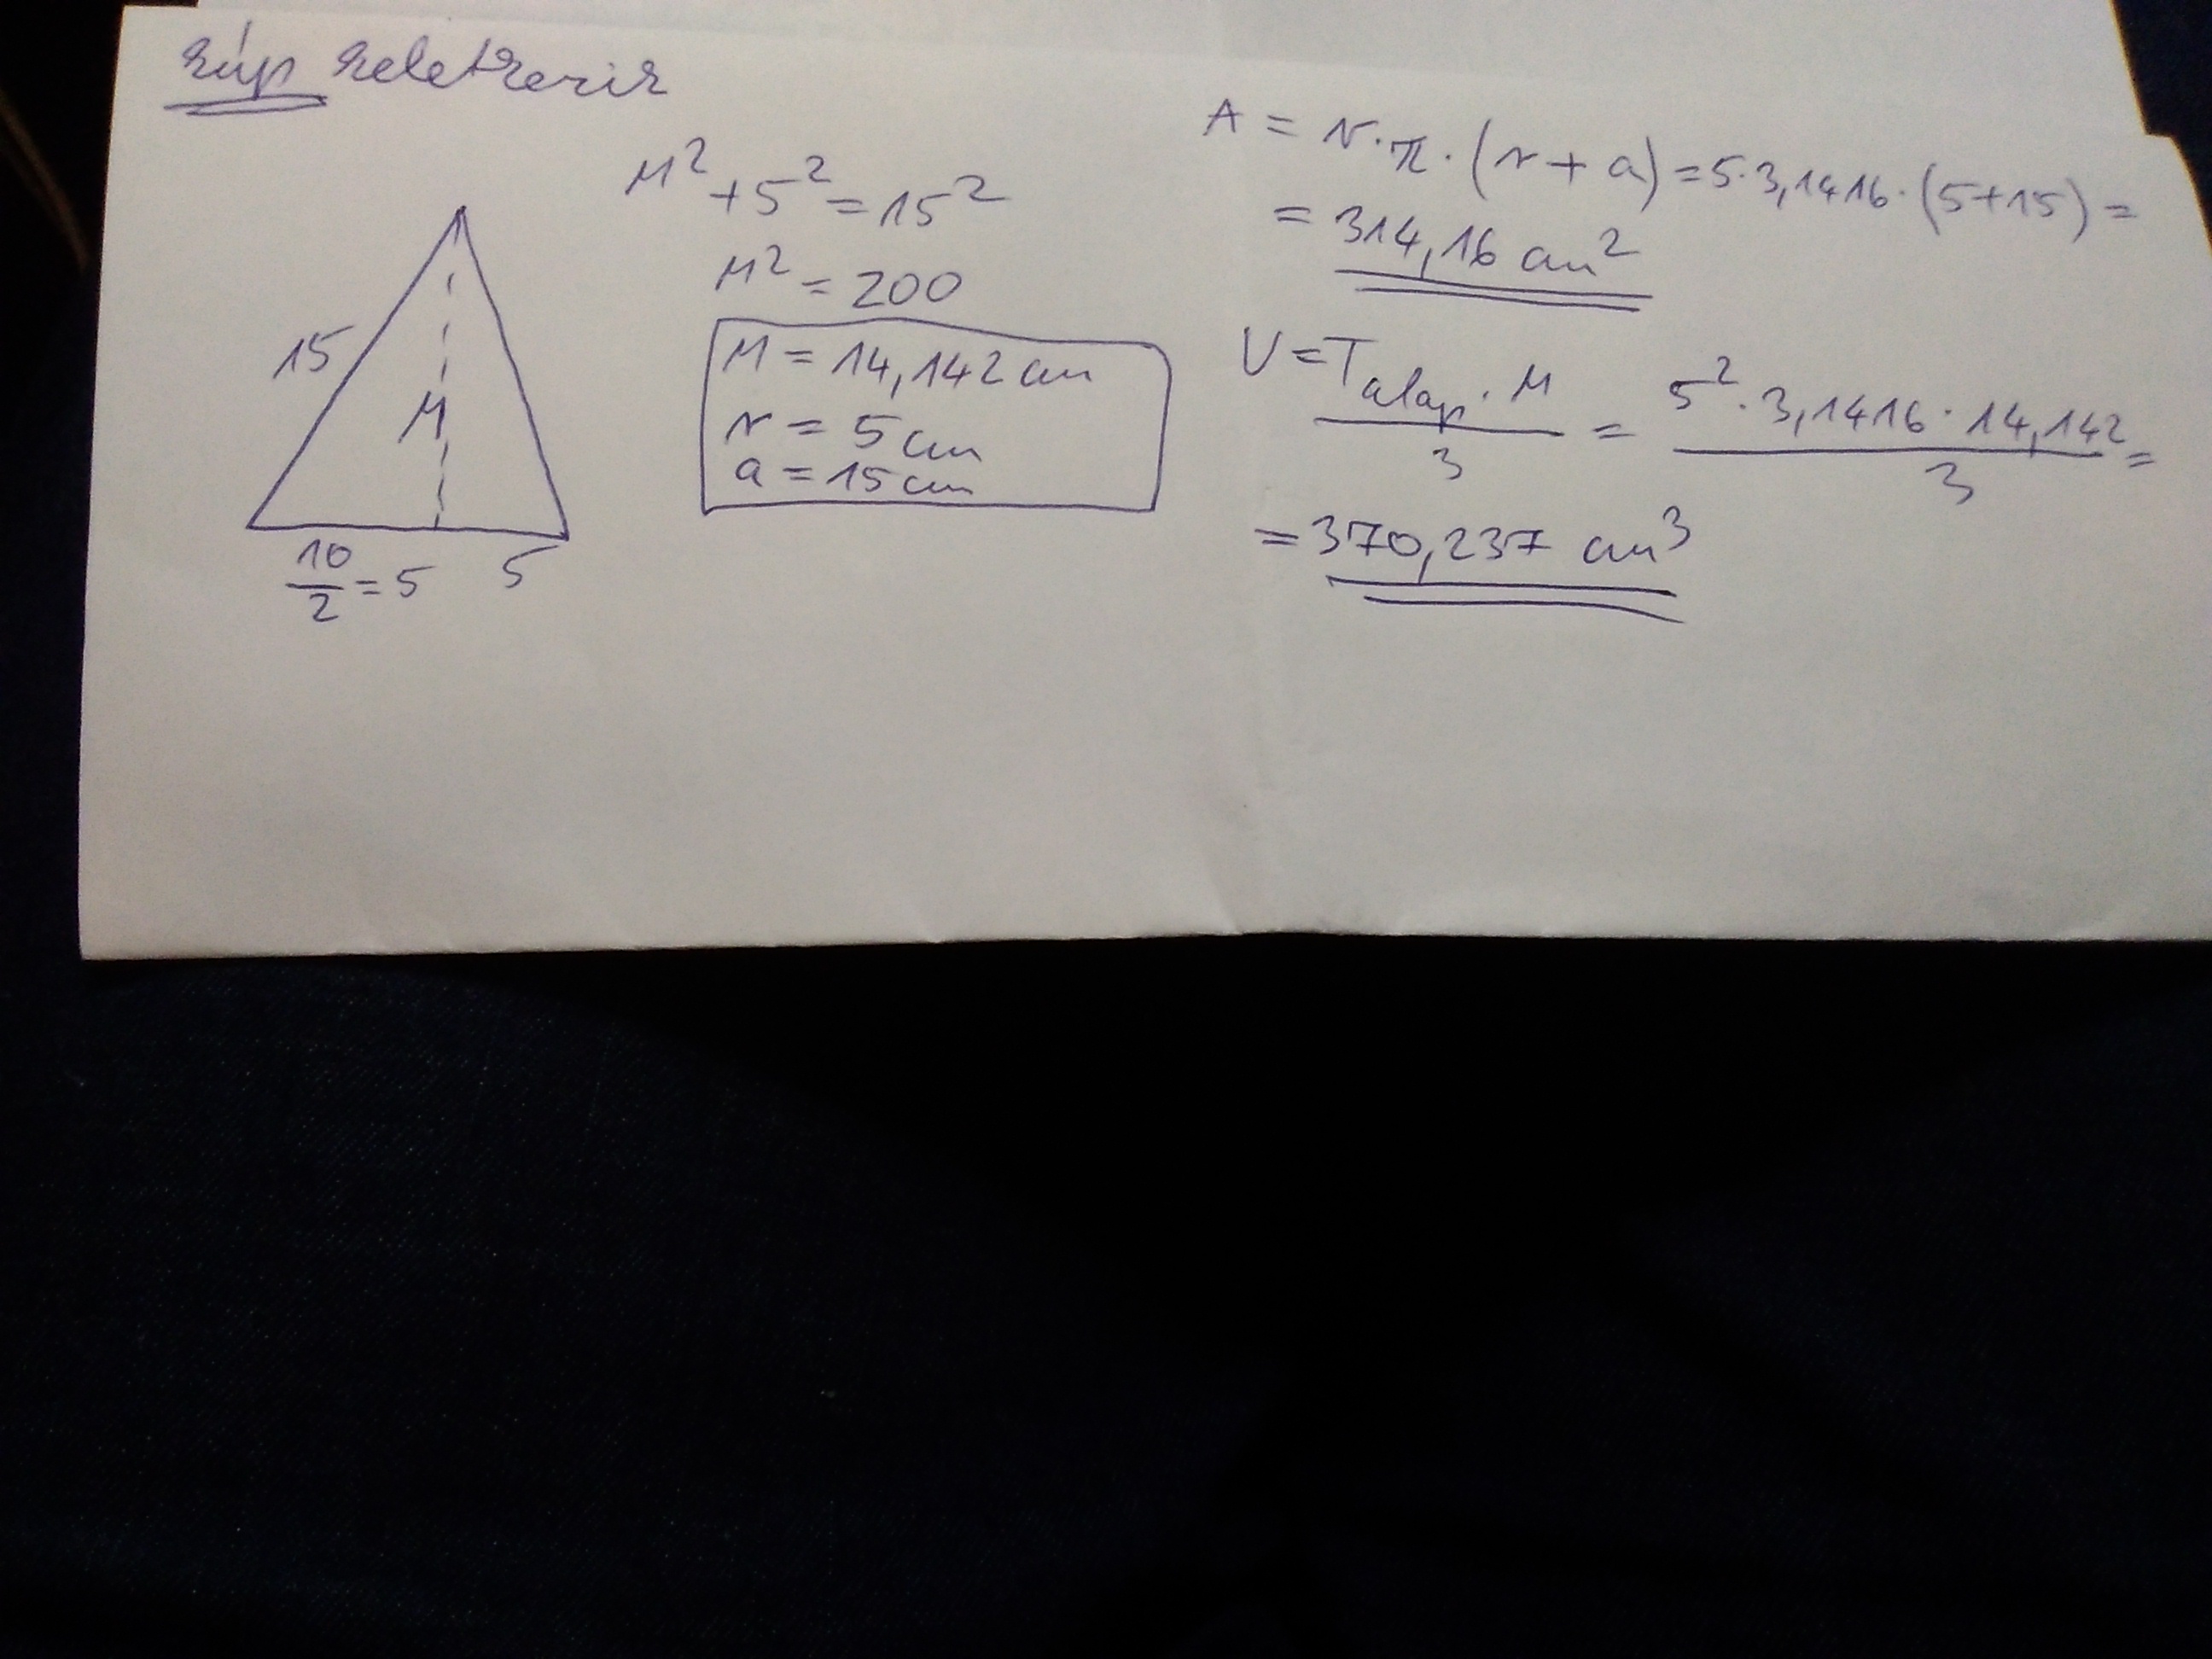 kúp keletkezik
15
M
10/2 = 5 5
M² + 5² = 15²
M² = 200
M = 14,142 cm
r = 5 cm
a = 15 cm
A = r · π · (r + a) = 5 · 3,1416 · (5 + 15) =
= 314,16 cm²
V = Talap · M / 3 = 5² · 3,1416 · 14,142 / 3 =
= 370,237 cm³